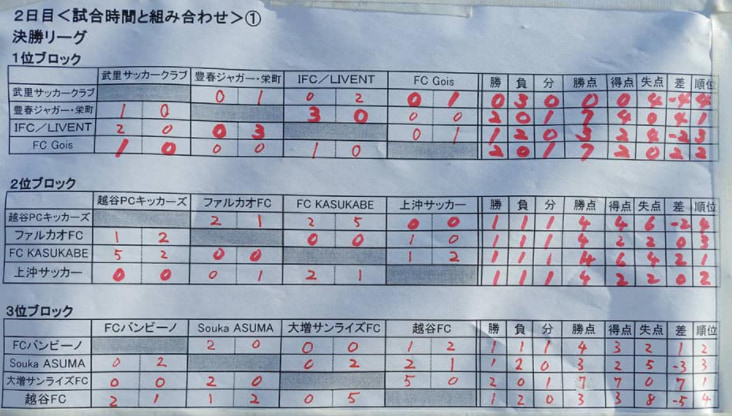 2日目<試合時間と組み合わせ>①
決勝リーグ
1位ブロック
武里サッカークラブ 豊春ジャガー・栄町 IFC/LIVENT FC Gois 勝 負 分 勝点 得点 失点 差 順位
武里サッカークラブ 0 1 0 2 0 1 0 3 0 0 0 4 -4 4
豊春ジャガー・栄町 1 0 3 0 0 0 2 0 1 7 4 0 4 1
IFC/LIVENT 2 0 0 3 0 1 1 2 0 3 2 4 -2 3
FC Gois 1 0 0 0 1 0 2 0 1 7 2 0 2 2
2位ブロック
越谷PCキッカーズ ファルカオFC FC KASUKABE 上沖サッカー 勝 負 分 勝点 得点 失点 差 順位
越谷PCキッカーズ 2 1 2 5 0 0 1 1 1 4 4 6 -2 4
ファルカオFC 1 2 0 0 1 0 1 1 1 4 2 2 0 3
FC KASUKABE 5 2 0 0 1 2 1 1 1 4 6 4 2 1
上沖サッカー 0 0 0 1 2 1 1 1 1 4 2 2 0 2
3位ブロック
FCバンビーノ Souka ASUMA 大増サンライズFC 越谷FC 勝 負 分 勝点 得点 失点 差 順位
FCバンビーノ 2 0 0 0 1 2 1 1 1 4 3 2 1 2
Souka ASUMA 0 2 0 2 2 1 1 2 0 3 2 5 -3 3
大増サンライズFC 0 0 2 0 5 0 2 0 1 7 7 0 7 1
越谷FC 2 1 1 2 0 5 1 2 0 3 3 8 -5 4